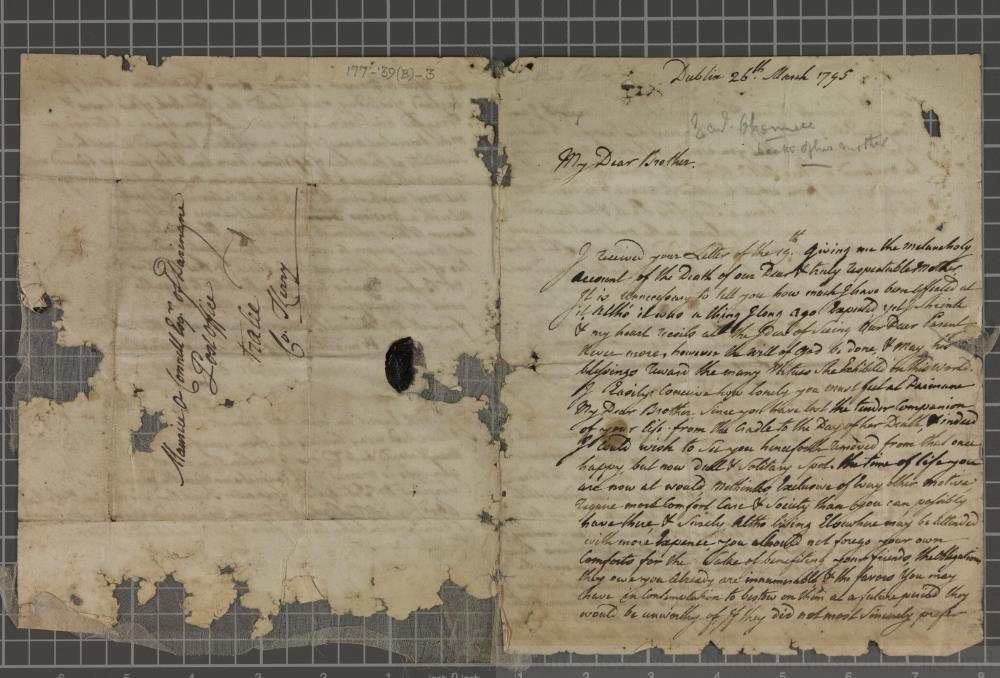 177-'59(B)-3
Maurice O Connell Esqr. of Darinane
Postoffice
tralee
Co. Kerry
Dublin 26th. March 1795
mother
My Dear Brother.
I received your Letter of the 19th. giving me the melancholy
account of the Death of our Dear & truly respectable Mother.
It is unnecessary to tell you how much I have been afflicted at
it. Altho' it was a thing I long ago Expected yet I shrink
& my heart recoils at the Idea of Seeing Our Dear Parent
never more, however the Will of God be done, & May his
blessings reward the many Virtues She Exhibited in this World.
I Easily Conceive how lonely you must feel at Darinane
My Dear Brother. Since you have lost the tender Companion
of your life from the Cradle to the Day of her Death, & indeed
I Could wish to See you henceforth removed from that once
happy but now Dull & Solitary Spot. the time of life you
are now at would methinks Exclusive of Every other motive
require more Comfort Care & Society than you can possibly
have there & Surely Altho living Elsewhere may be attended
with more Expence you should not forego your own
Comforts for the Sake of benefiting your friends, the Obligations
they owe you Already are innumerable & the favors You may
have in Contemplation to bestow on them at a future period they
would be unworthy of If they did not most Sincerely prefer